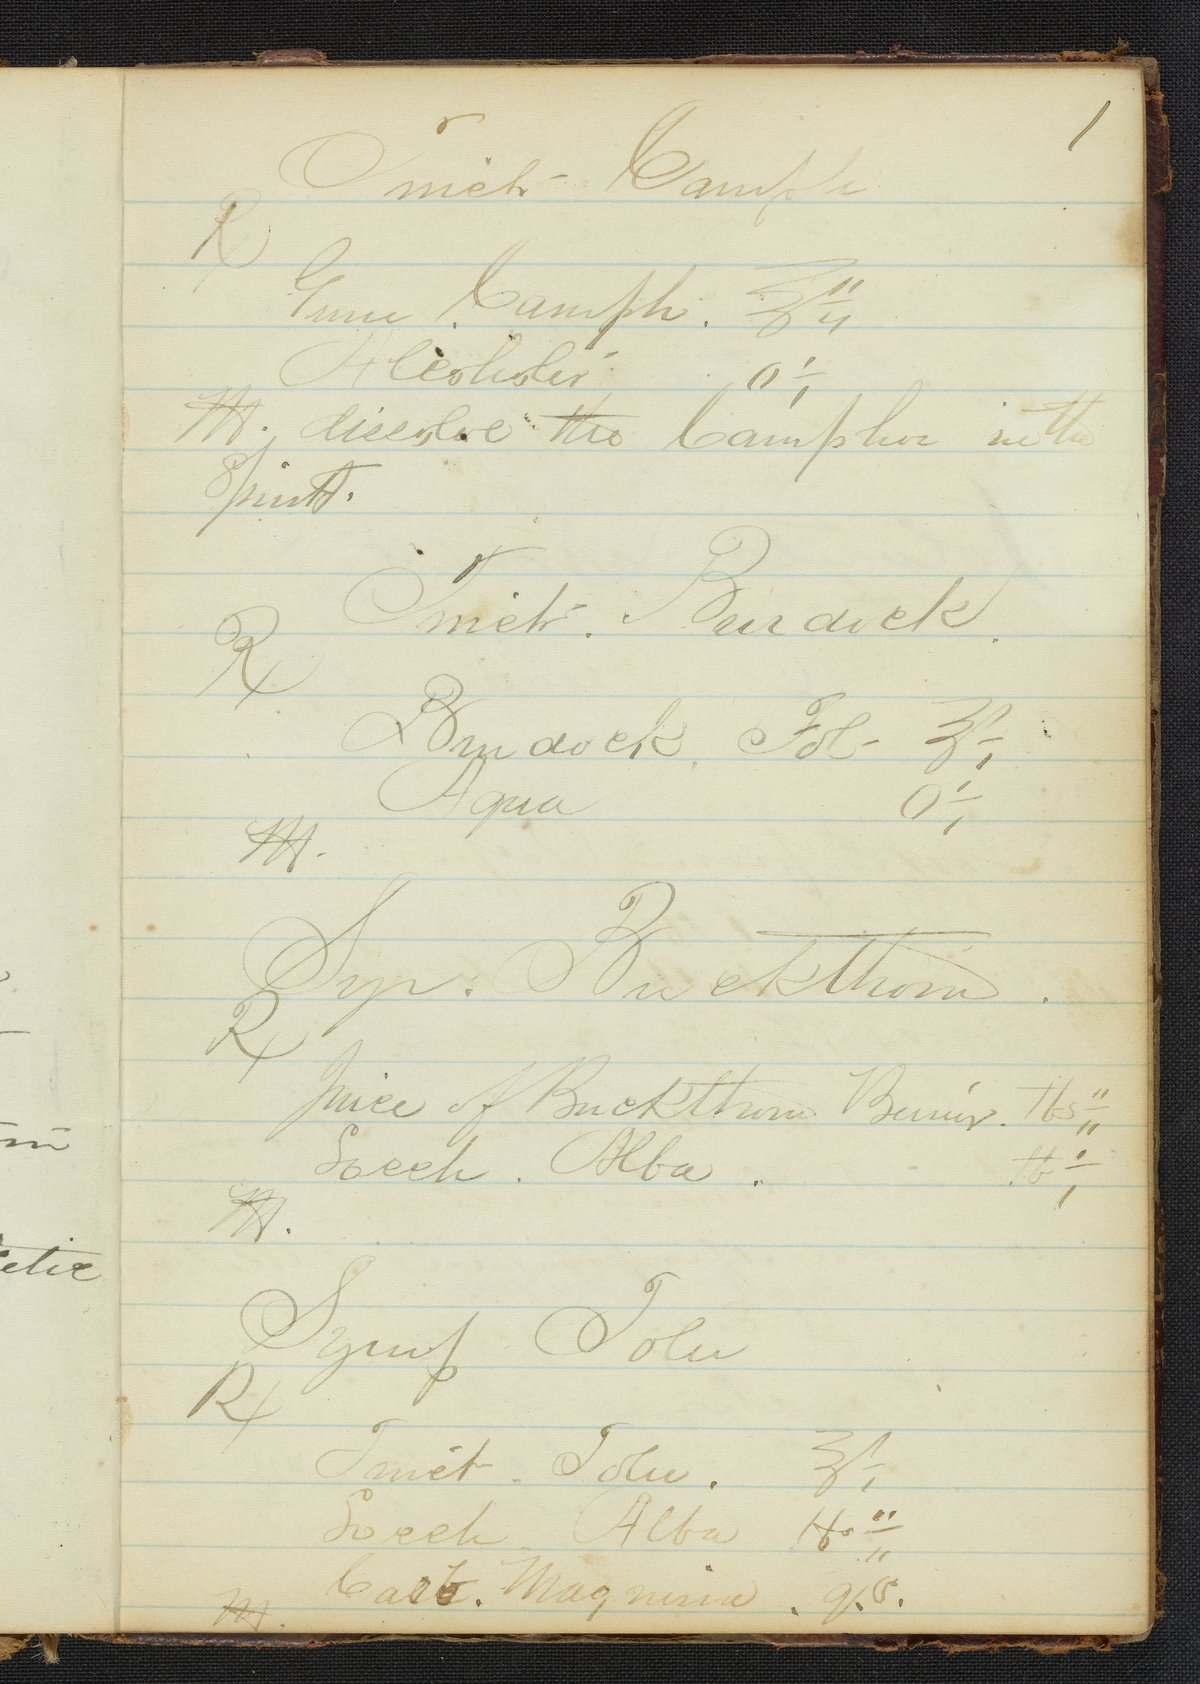 1
Tinct. Camph
℞
Gum Camph. ℥ii
Alcoholis Oi
M. dissolve the Camphor in the
Spirit.
Tinct. Burdock.
℞
Burdock Fol ℥i
Aqua Oi
M.
Syr. Buckthorn.
℞
Juice of Buckthorn Berries. lbs ii
Sacch. Alba. lb i
M.
Syrup Tolu
℞
Tinct. Tolu. ℥i
Sacch. Alba lbs ii
Carb. Magnesia. q.s.
M.
etic